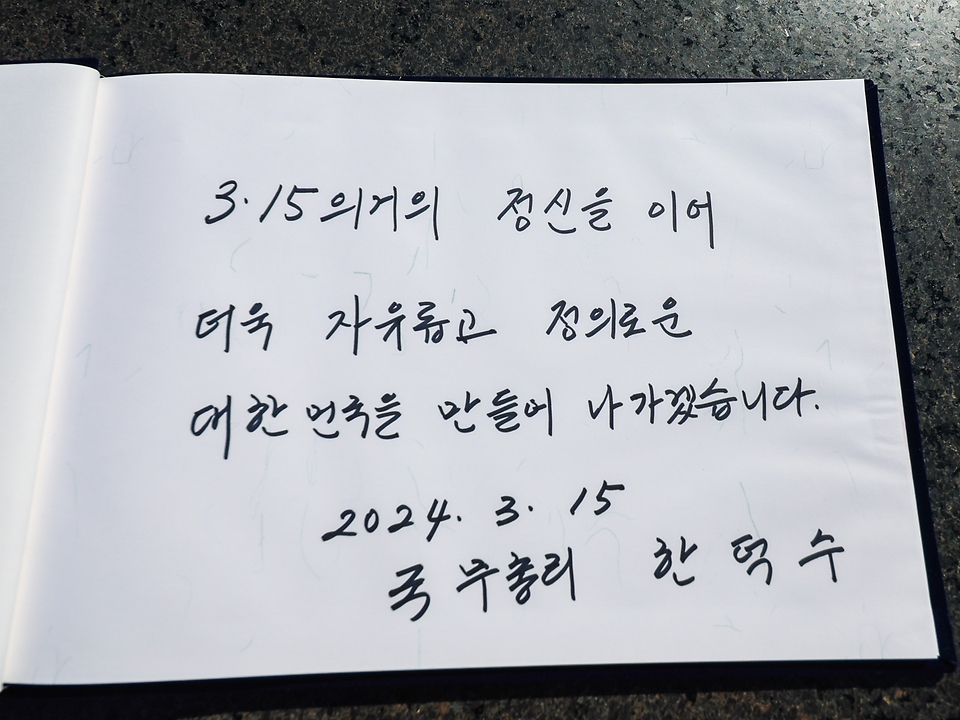 3·15의거의 정신을 이어
더욱 자유롭고 정의로운
대한민국을 만들어 나가겠습니다.
2024. 3. 15
국무총리 한덕수